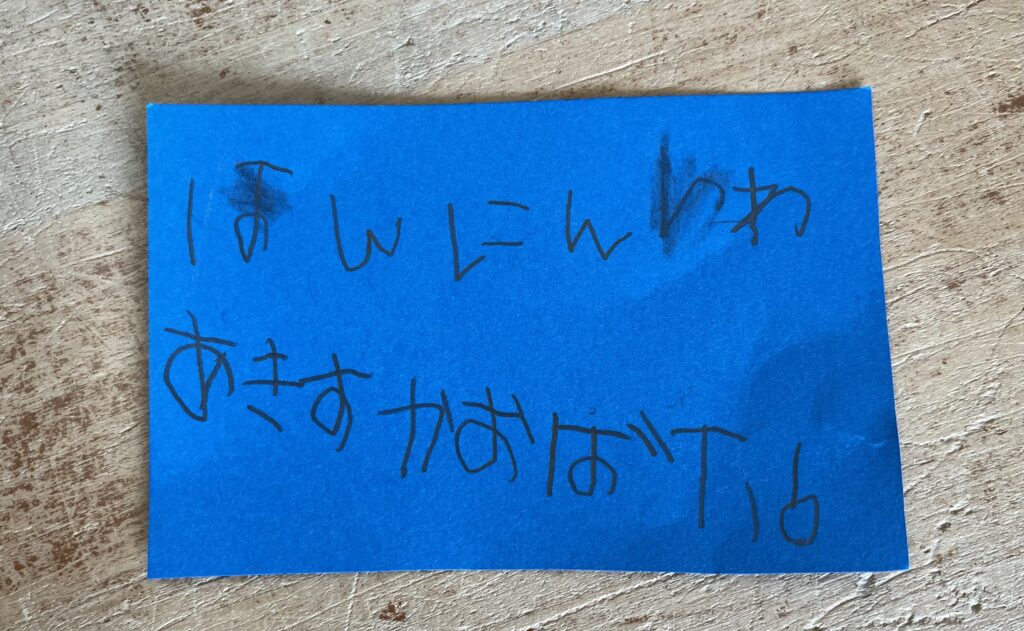 ほんにんわ
あきすかおば